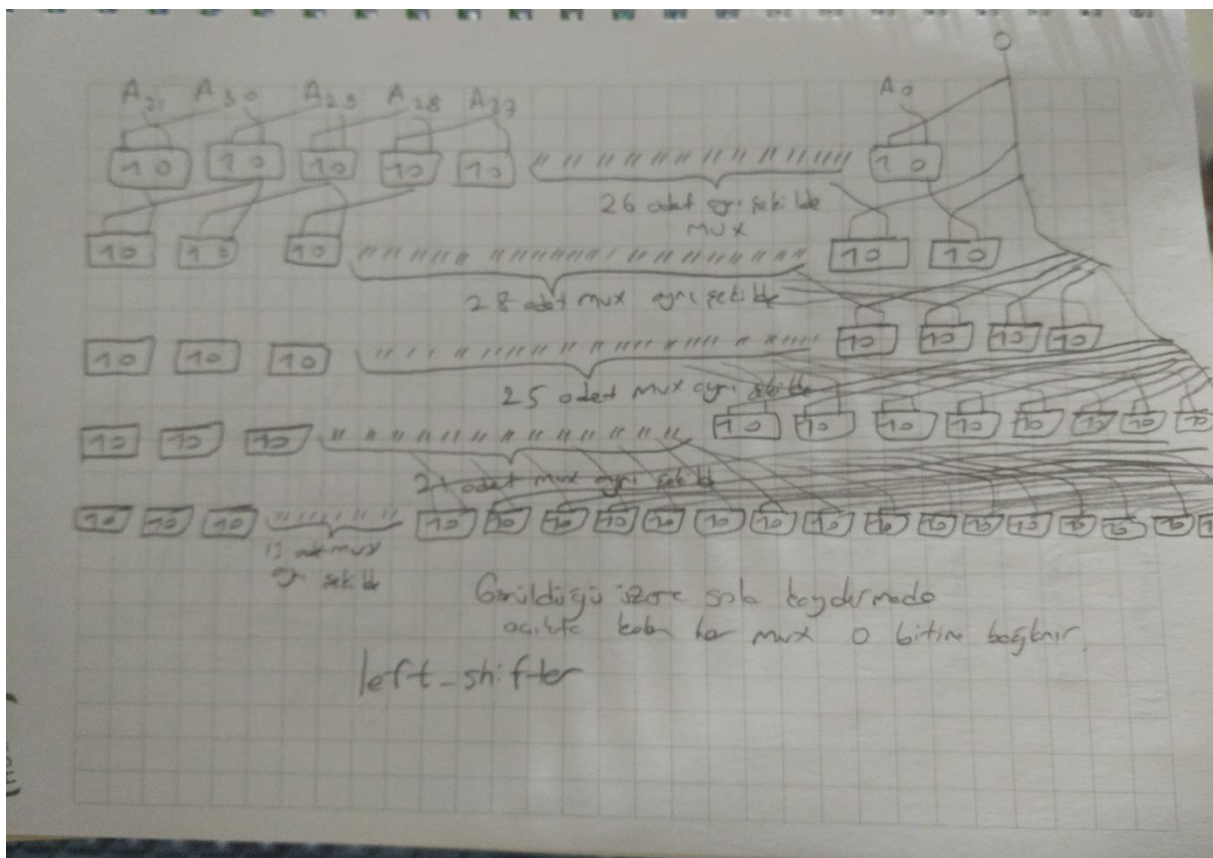 0
A31 A30 A29 A28 A27 A0
10 10 10 10 10 10
26 adet aynı şekilde
mux
10 10 10 10 10
28 adet mux aynı şekilde
10 10 10 10 10 10 10
25 adet mux aynı şekilde
10 10 10 10 10 10 10 10 10 10 10
21 adet mux aynı şekilde
10 10 10 10 10 10 10 10 10 10 10 10 10 10 10 10 10 10
adet mux
aynı şekilde
Görüldüğü üzere sola kaydırmada
açıkta kalan her mux 0 bitine bağlanır.
left_shifter